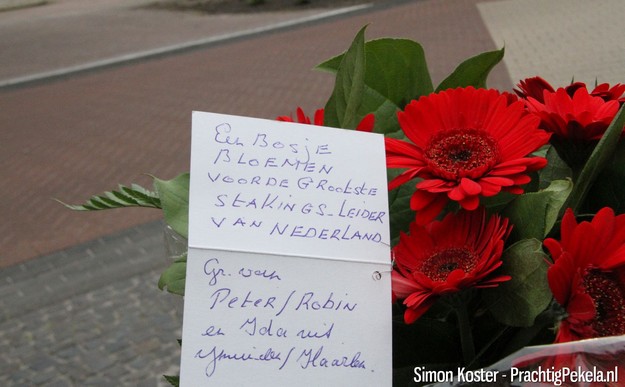 Een Bosje
BLOEMEN
VOOR DE GROOTSTE
STAKINGS-LEIDER
VAN NEDERLAND
Gr. van
Peter/Robin
en Ida uit
Ymuiden/Haarlem.
Simon Koster - PrachtigPekela.nl